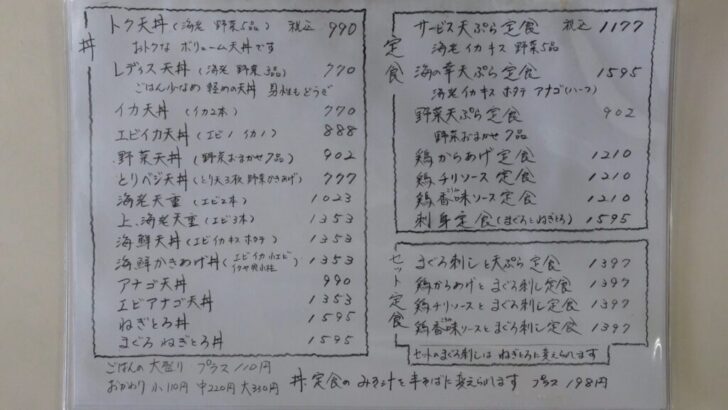 丼
トク天丼(海老 野菜5品) 税込 990
おトクな ボリューム天丼です
レディス天丼(海老 野菜3品) 770
ごはん少なめ 軽めの天丼 男性もどうぞ
イカ天丼(イカ2本) 770
エビイカ天丼(エビ1 イカ1) 888
野菜天丼(野菜おまかせ7品) 902
とりベジ天丼(とり天3枚 野菜かきあげ) 777
海老天重(エビ2本) 1023
上、海老天重(エビ3本) 1353
海鮮天丼(エビ イカ キス ホタテ) 1353
海鮮かきあげ丼(エビ イカ 小エビ 小柱) 1353
アナゴ天丼 990
エビアナゴ天丼 1353
ねぎとろ丼 1595
まぐろ ねぎとろ丼 1595
ごはんの大盛り プラス 110円
おかわり 小110円 中220円 大330円
定食
サービス天ぷら定食 税込 1177
海老 イカ キス 野菜5品
海の幸天ぷら定食 1595
海老 イカ キス ホタテ アナゴ(ハーフ)
野菜天ぷら定食 902
野菜おまかせ 7品
鶏からあげ定食 1210
鶏チリソース定食 1210
鶏香味ソース定食 1210
刺身定食(まぐろとねぎとろ) 1595
セット定食
まぐろ刺しと天ぷら定食 1397
鶏からあげとまぐろ刺し定食 1397
鶏チリソースとまぐろ刺し定食 1397
鶏香味ソースとまぐろ刺し定食 1397
セットのまぐろ刺しは ねぎとろに変えられます
丼・定食の みそ汁を半そばに変えられます プラス 198円